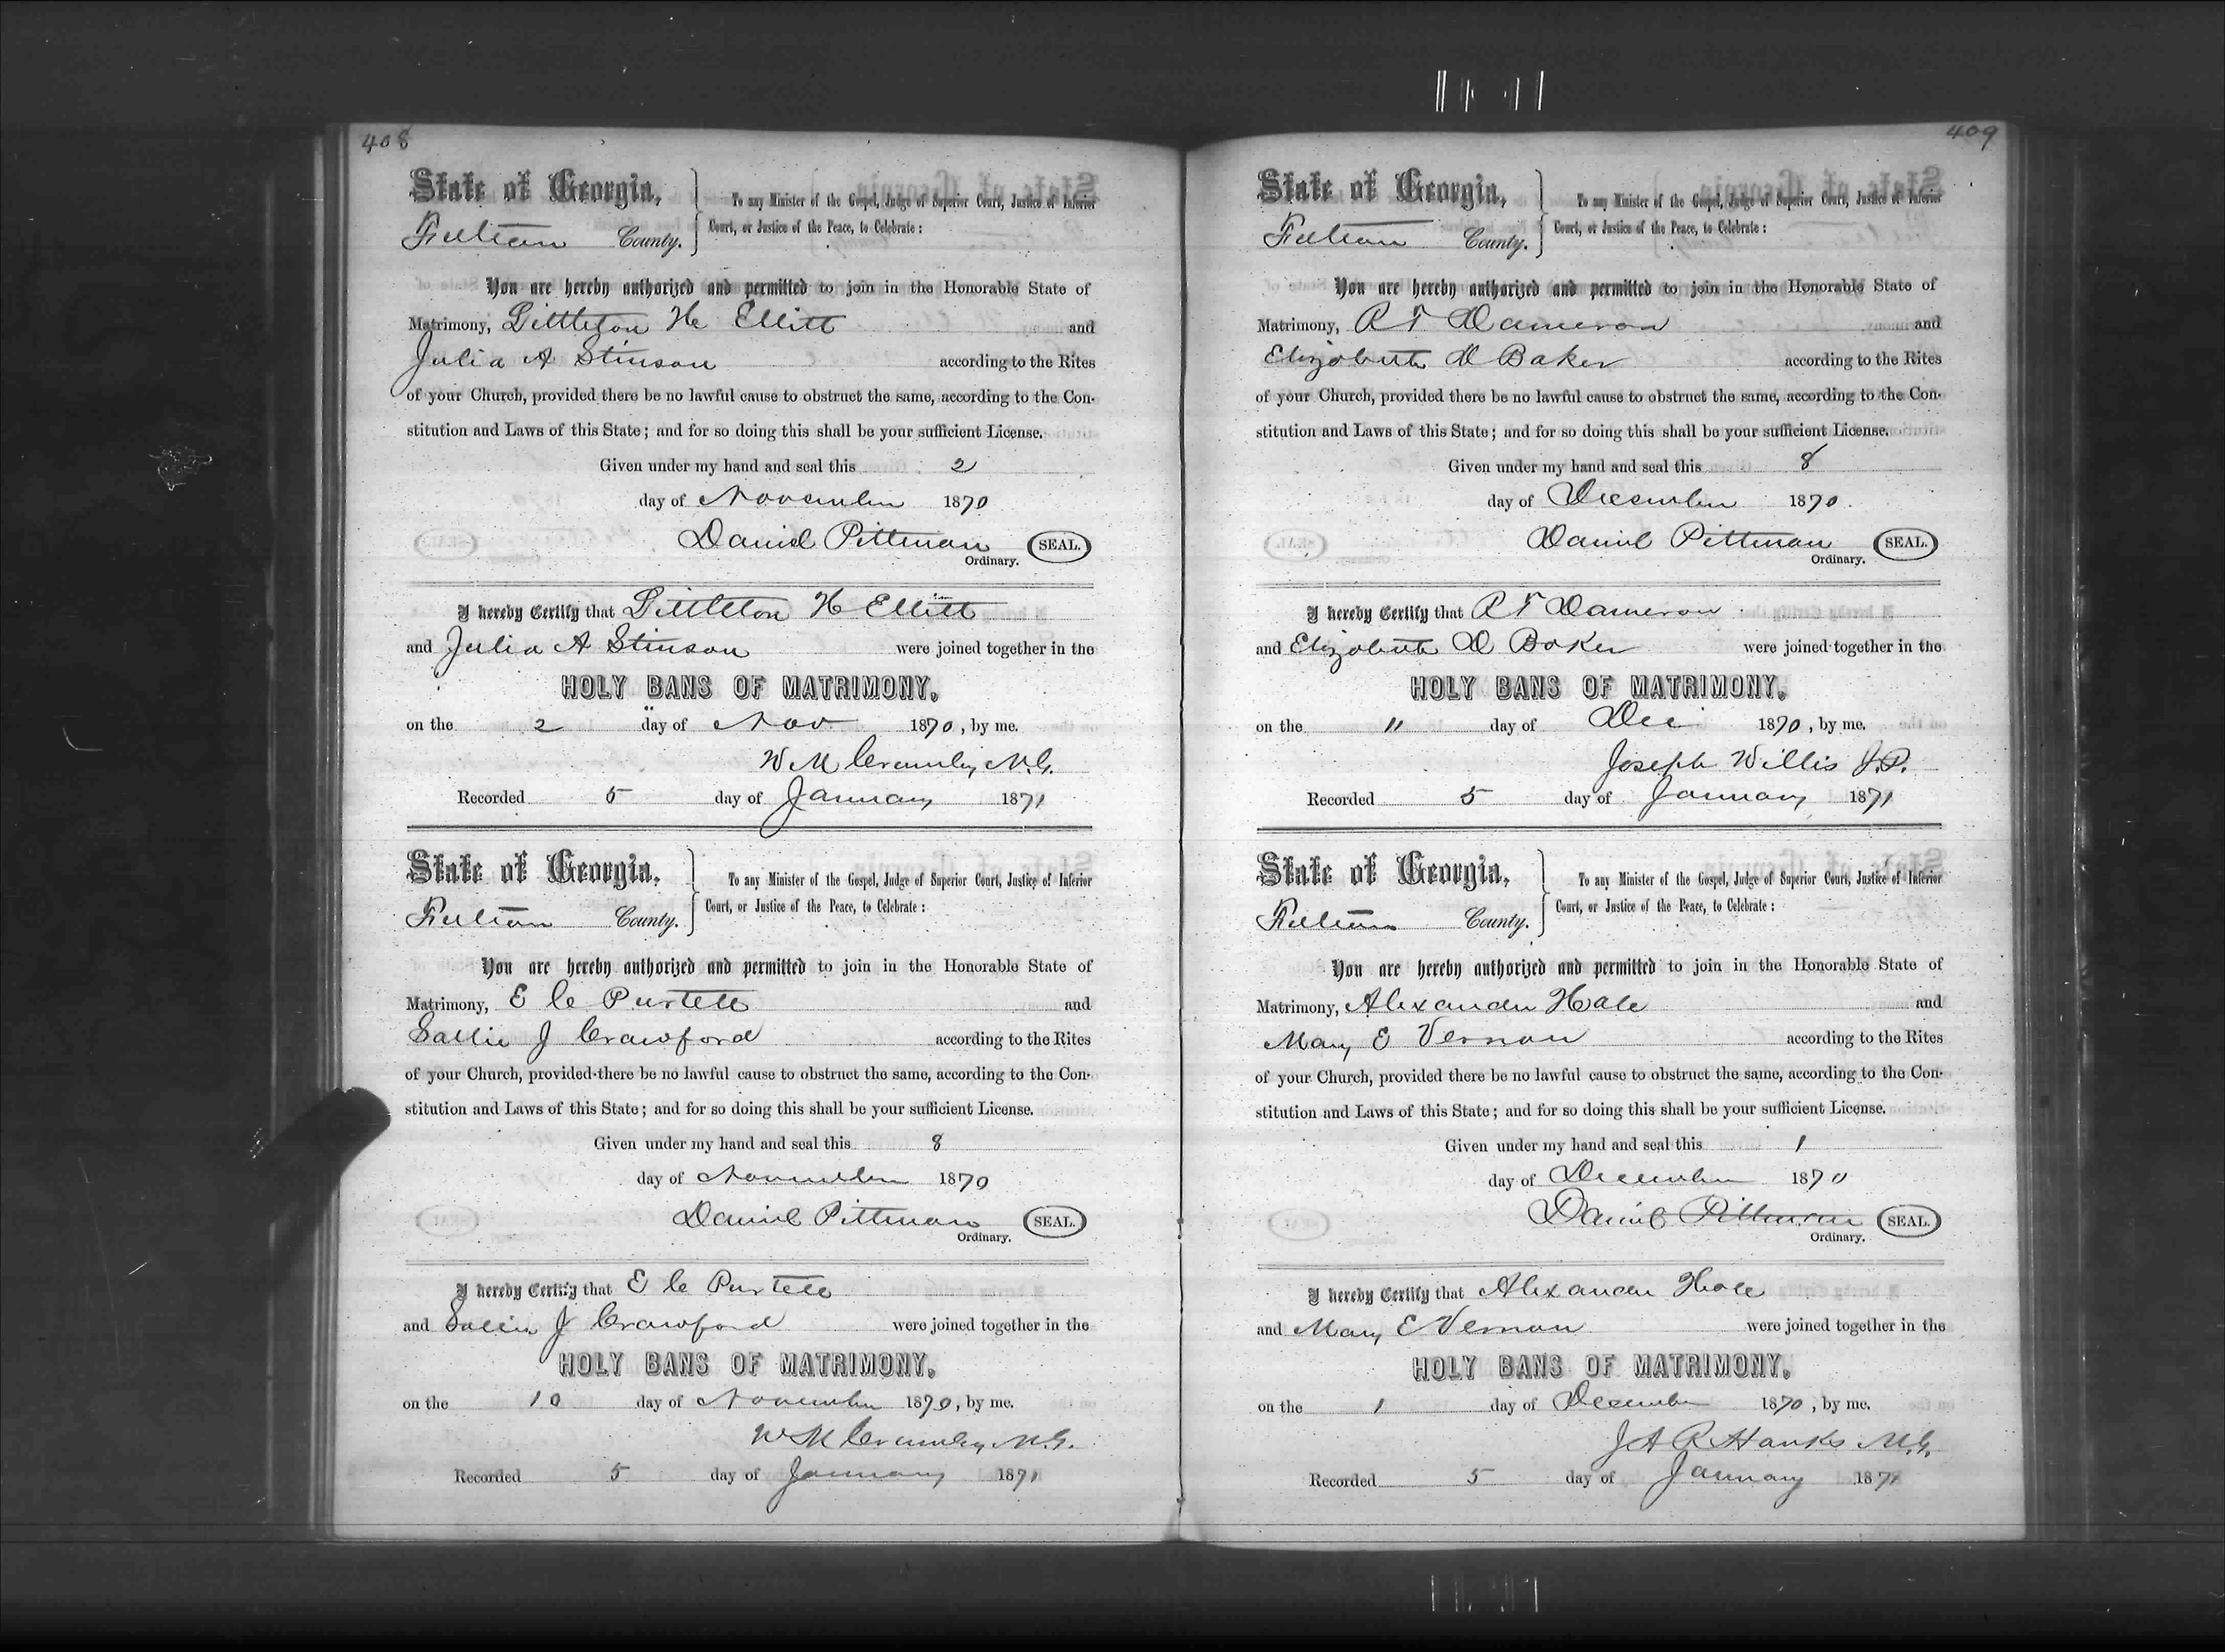 408
State of Georgia,
Fulton County.
To any Minister of the Gospel, Judge of Superior Court, Justice of Inferior
Court, or Justice of the Peace, to Celebrate :
You are hereby authorized and permitted to join in the Honorable State of
Matrimony, Littleton H Ellitt and
Julia A Stinson according to the Rites
of your Church, provided there be no lawful cause to obstruct the same, according to the Con-
stitution and Laws of this State; and for so doing this shall be your sufficient License.
Given under my hand and seal this 2
day of November 1870
Daniel Pittman SEAL.
Ordinary.
I hereby Certify that Littleton H Ellitt
and Julia A Stinson were joined together in the
HOLY BANS OF MATRIMONY,
on the 2 day of Nov 1870, by me.
W M Crumley M.G.
Recorded 5 day of January 1871
State of Georgia,
Fulton County.
To any Minister of the Gospel, Judge of Superior Court, Justice of Inferior
Court, or Justice of the Peace, to Celebrate :
You are hereby authorized and permitted to join in the Honorable State of
Matrimony, E C Purtell and
Sallie J Crawford according to the Rites
of your Church, provided there be no lawful cause to obstruct the same, according to the Con-
stitution and Laws of this State; and for so doing this shall be your sufficient License.
Given under my hand and seal this 8
day of November 1870
Daniel Pittman SEAL.
Ordinary.
I hereby Certify that E C Purtell
and Sallie J Crawford were joined together in the
HOLY BANS OF MATRIMONY,
on the 10 day of November 1870, by me.
W M Crumley M.G.
Recorded 5 day of January 1871
409
State of Georgia,
Fulton County.
To any Minister of the Gospel, Judge of Superior Court, Justice of Inferior
Court, or Justice of the Peace, to Celebrate :
You are hereby authorized and permitted to join in the Honorable State of
Matrimony, R T Dameron and
Elizabeth D Baker according to the Rites
of your Church, provided there be no lawful cause to obstruct the same, according to the Con-
stitution and Laws of this State; and for so doing this shall be your sufficient License.
Given under my hand and seal this 8
day of December 1870.
Daniel Pittman SEAL.
Ordinary.
I hereby Certify that R T Dameron
and Elizabeth D Baker were joined together in the
HOLY BANS OF MATRIMONY,
on the 11 day of Dec 1870, by me.
Joseph Willis J.P.
Recorded 5 day of January 1871
State of Georgia,
Fulton County.
To any Minister of the Gospel, Judge of Superior Court, Justice of Inferior
Court, or Justice of the Peace, to Celebrate :
You are hereby authorized and permitted to join in the Honorable State of
Matrimony, Alexander Hale and
Mary E Vernon according to the Rites
of your Church, provided there be no lawful cause to obstruct the same, according to the Con-
stitution and Laws of this State; and for so doing this shall be your sufficient License.
Given under my hand and seal this 1
day of December 1870
Daniel Pittman SEAL.
Ordinary.
I hereby Certify that Alexander Hale
and Mary E Vernon were joined together in the
HOLY BANS OF MATRIMONY,
on the 1 day of December 1870, by me.
J A R Hanks M.G.
Recorded 5 day of January 1871